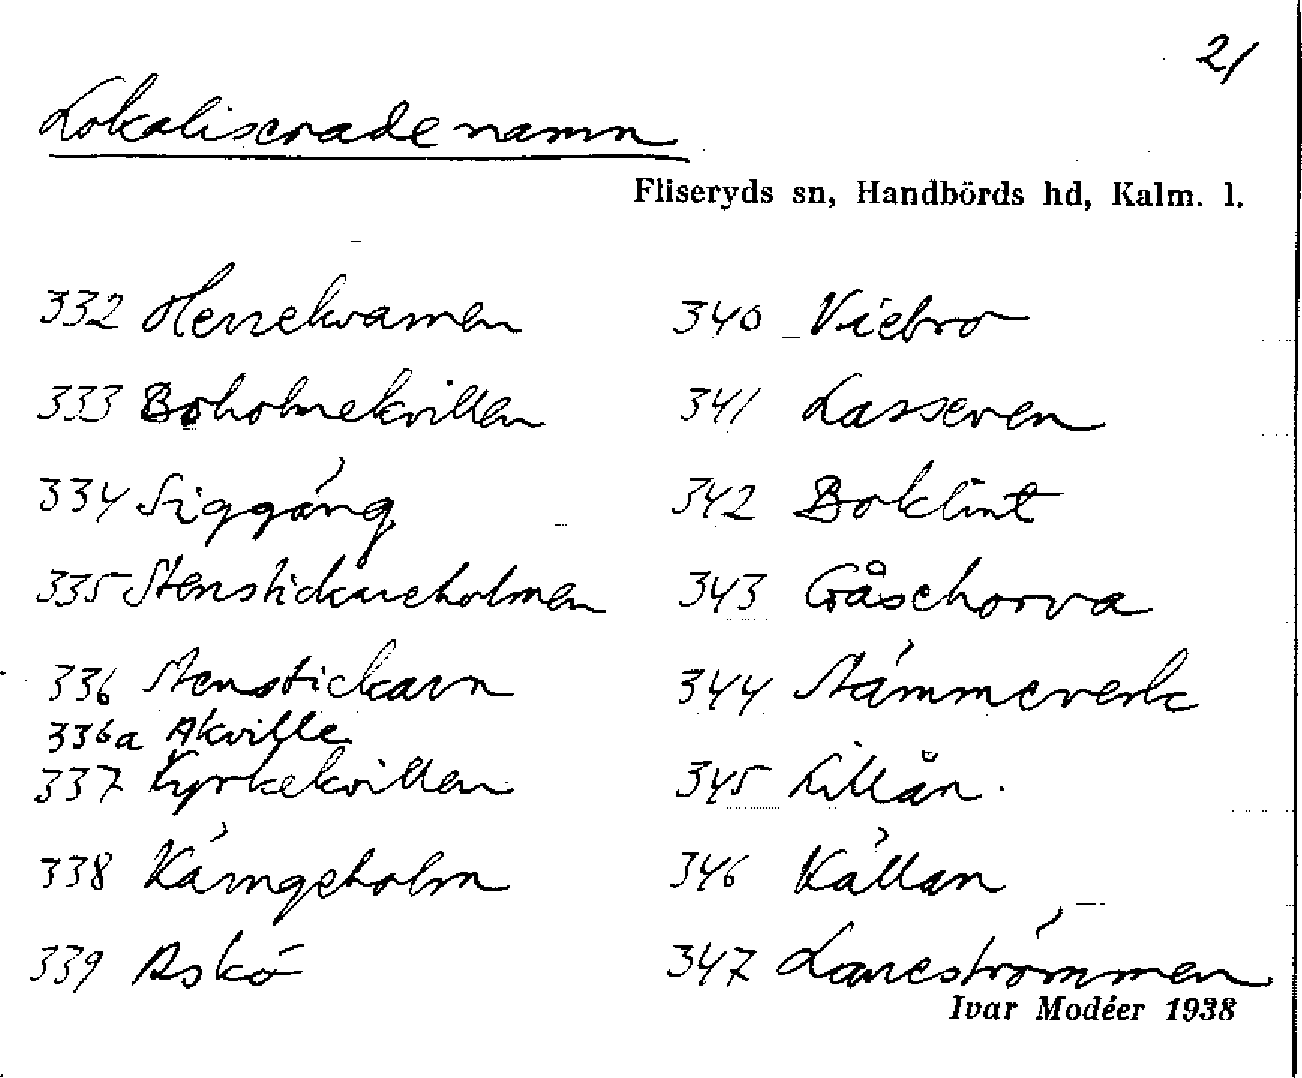 21
Lokaliserade namn
Fliseryds sn, Handbörds hd, Kalm. l.
332 Herrekvarnen
333 Boholmekvillen
334 Siggäng
335 Stenstickareholmen
336 Stenstickarn
336a Akville
337 Kyrkekvillen
338 Kämgeholm
339 Askö
340 Viebro
341 Lasseren
342 Boklint
343 Gåsehorva
344 Stämmeverk
345 Lillån
346 Källan
347 Laneströmmen
Ivar Modéer 1938